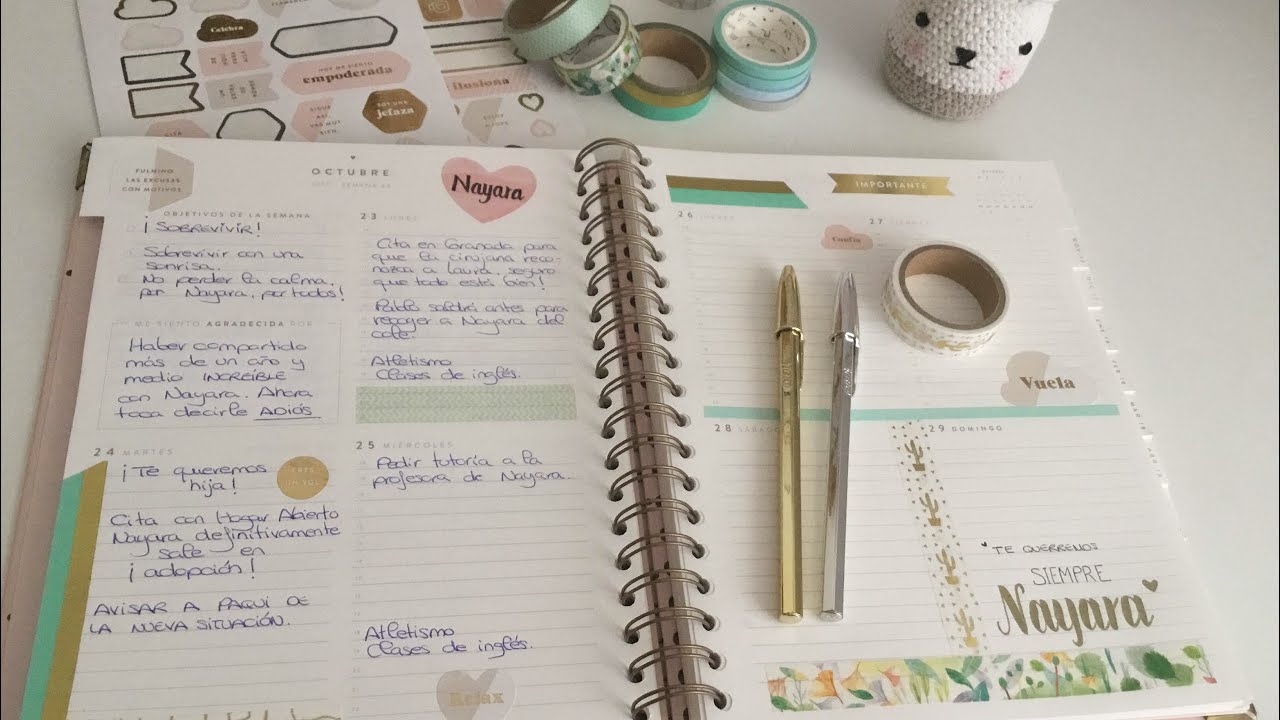 Celebra
HOY ME SIENTO
empoderada
ilusiona
SIGUE
ASÍ,
VAS MUY
BIEN
SOY UNA
jefaza
FULMINO
LAS EXCUSAS
CON MOTIVOS
OCTUBRE
SEMANA 43
Nayara
OBJETIVOS DE LA SEMANA
¡SOBREVIVIR!
Sobrevivir con una
sonrisa.
No perder la calma,
por Nayara, por todos!
ME SIENTO AGRADECIDA POR
Haber compartido
más de un año y
medio INCREÍBLE
con Nayara. Ahora
toca decirle ADIÓS
23 LUNES
Cita en Granada para
que la cirujana reco-
nozca a Laura, seguro
que todo está bien!
Pablo saldrá antes para
recoger a Nayara del
cole.
Atletismo
Clases de inglés.
24 MARTES
¡Te queremos
hija!
ERES
UN SOL
Cita con Hogar Abierto
Nayara definitivamente
sale en
¡adopción!
AVISAR A PAQUI DE
LA NUEVA SITUACIÓN.
25 MIÉRCOLES
Pedir tutoría a la
profesora de Nayara.
Atletismo
Clases de inglés.
Relax
IMPORTANTE
26 JUEVES
27 VIERNES
Confía
Vuela
28 SÁBADO
29 DOMINGO
TE QUEREMOS
SIEMPRE
Nayara